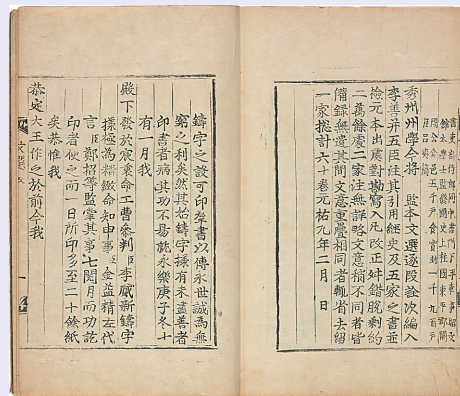 館大學士監修國史上柱國東平郡開
國公食邑五千戶食實封一千九百戶
秀州州學今將 監本文選逐段詮次編入
李善并五臣注其引用經史及五家之書並
檢元本出處對勘寫入凡改正舛錯脫剩約
二萬餘處二家注無詳略文意稍不同者皆
備錄無遺其間文意重疊相同者輒省去留
一家揔計六十卷元祐九年二月 日
鑄字之設可印群書以傳永世誠爲無
窮之利矣然其始鑄字樣有未盡善者
印書者病其功不易就永樂庚子冬十
有一月我
殿下發於宸衷命工曹參判臣李蕆新鑄字
樣極爲精緻命知申事臣金益精左代
言臣鄭招等監掌其事七閱月而功訖
印者便之而一日所印多至二十餘紙
矣恭惟我
恭定大王作之於前今我